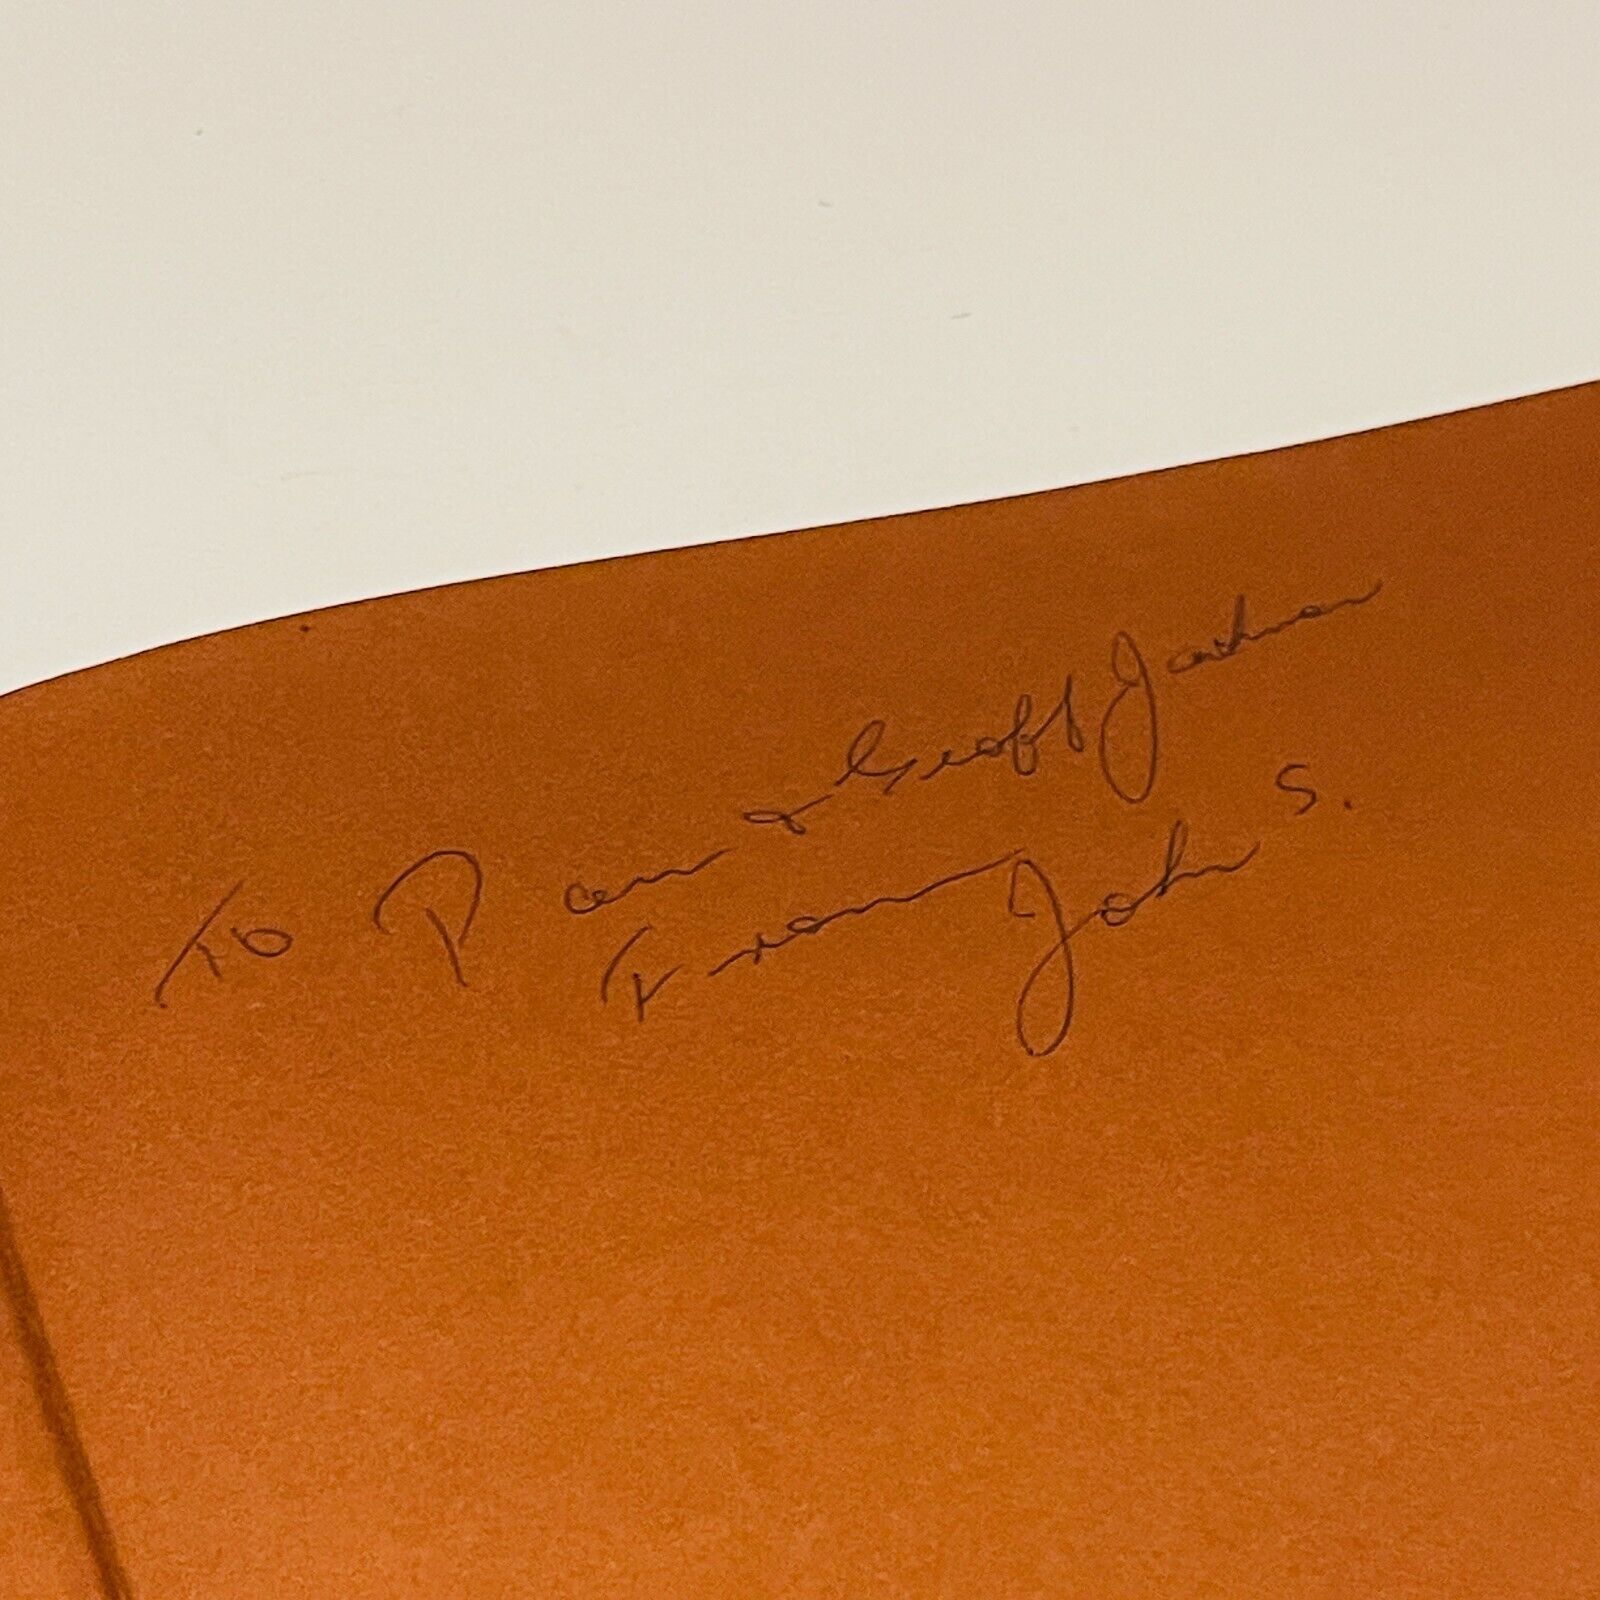 To Pam & Geoff Jackman
From John S.